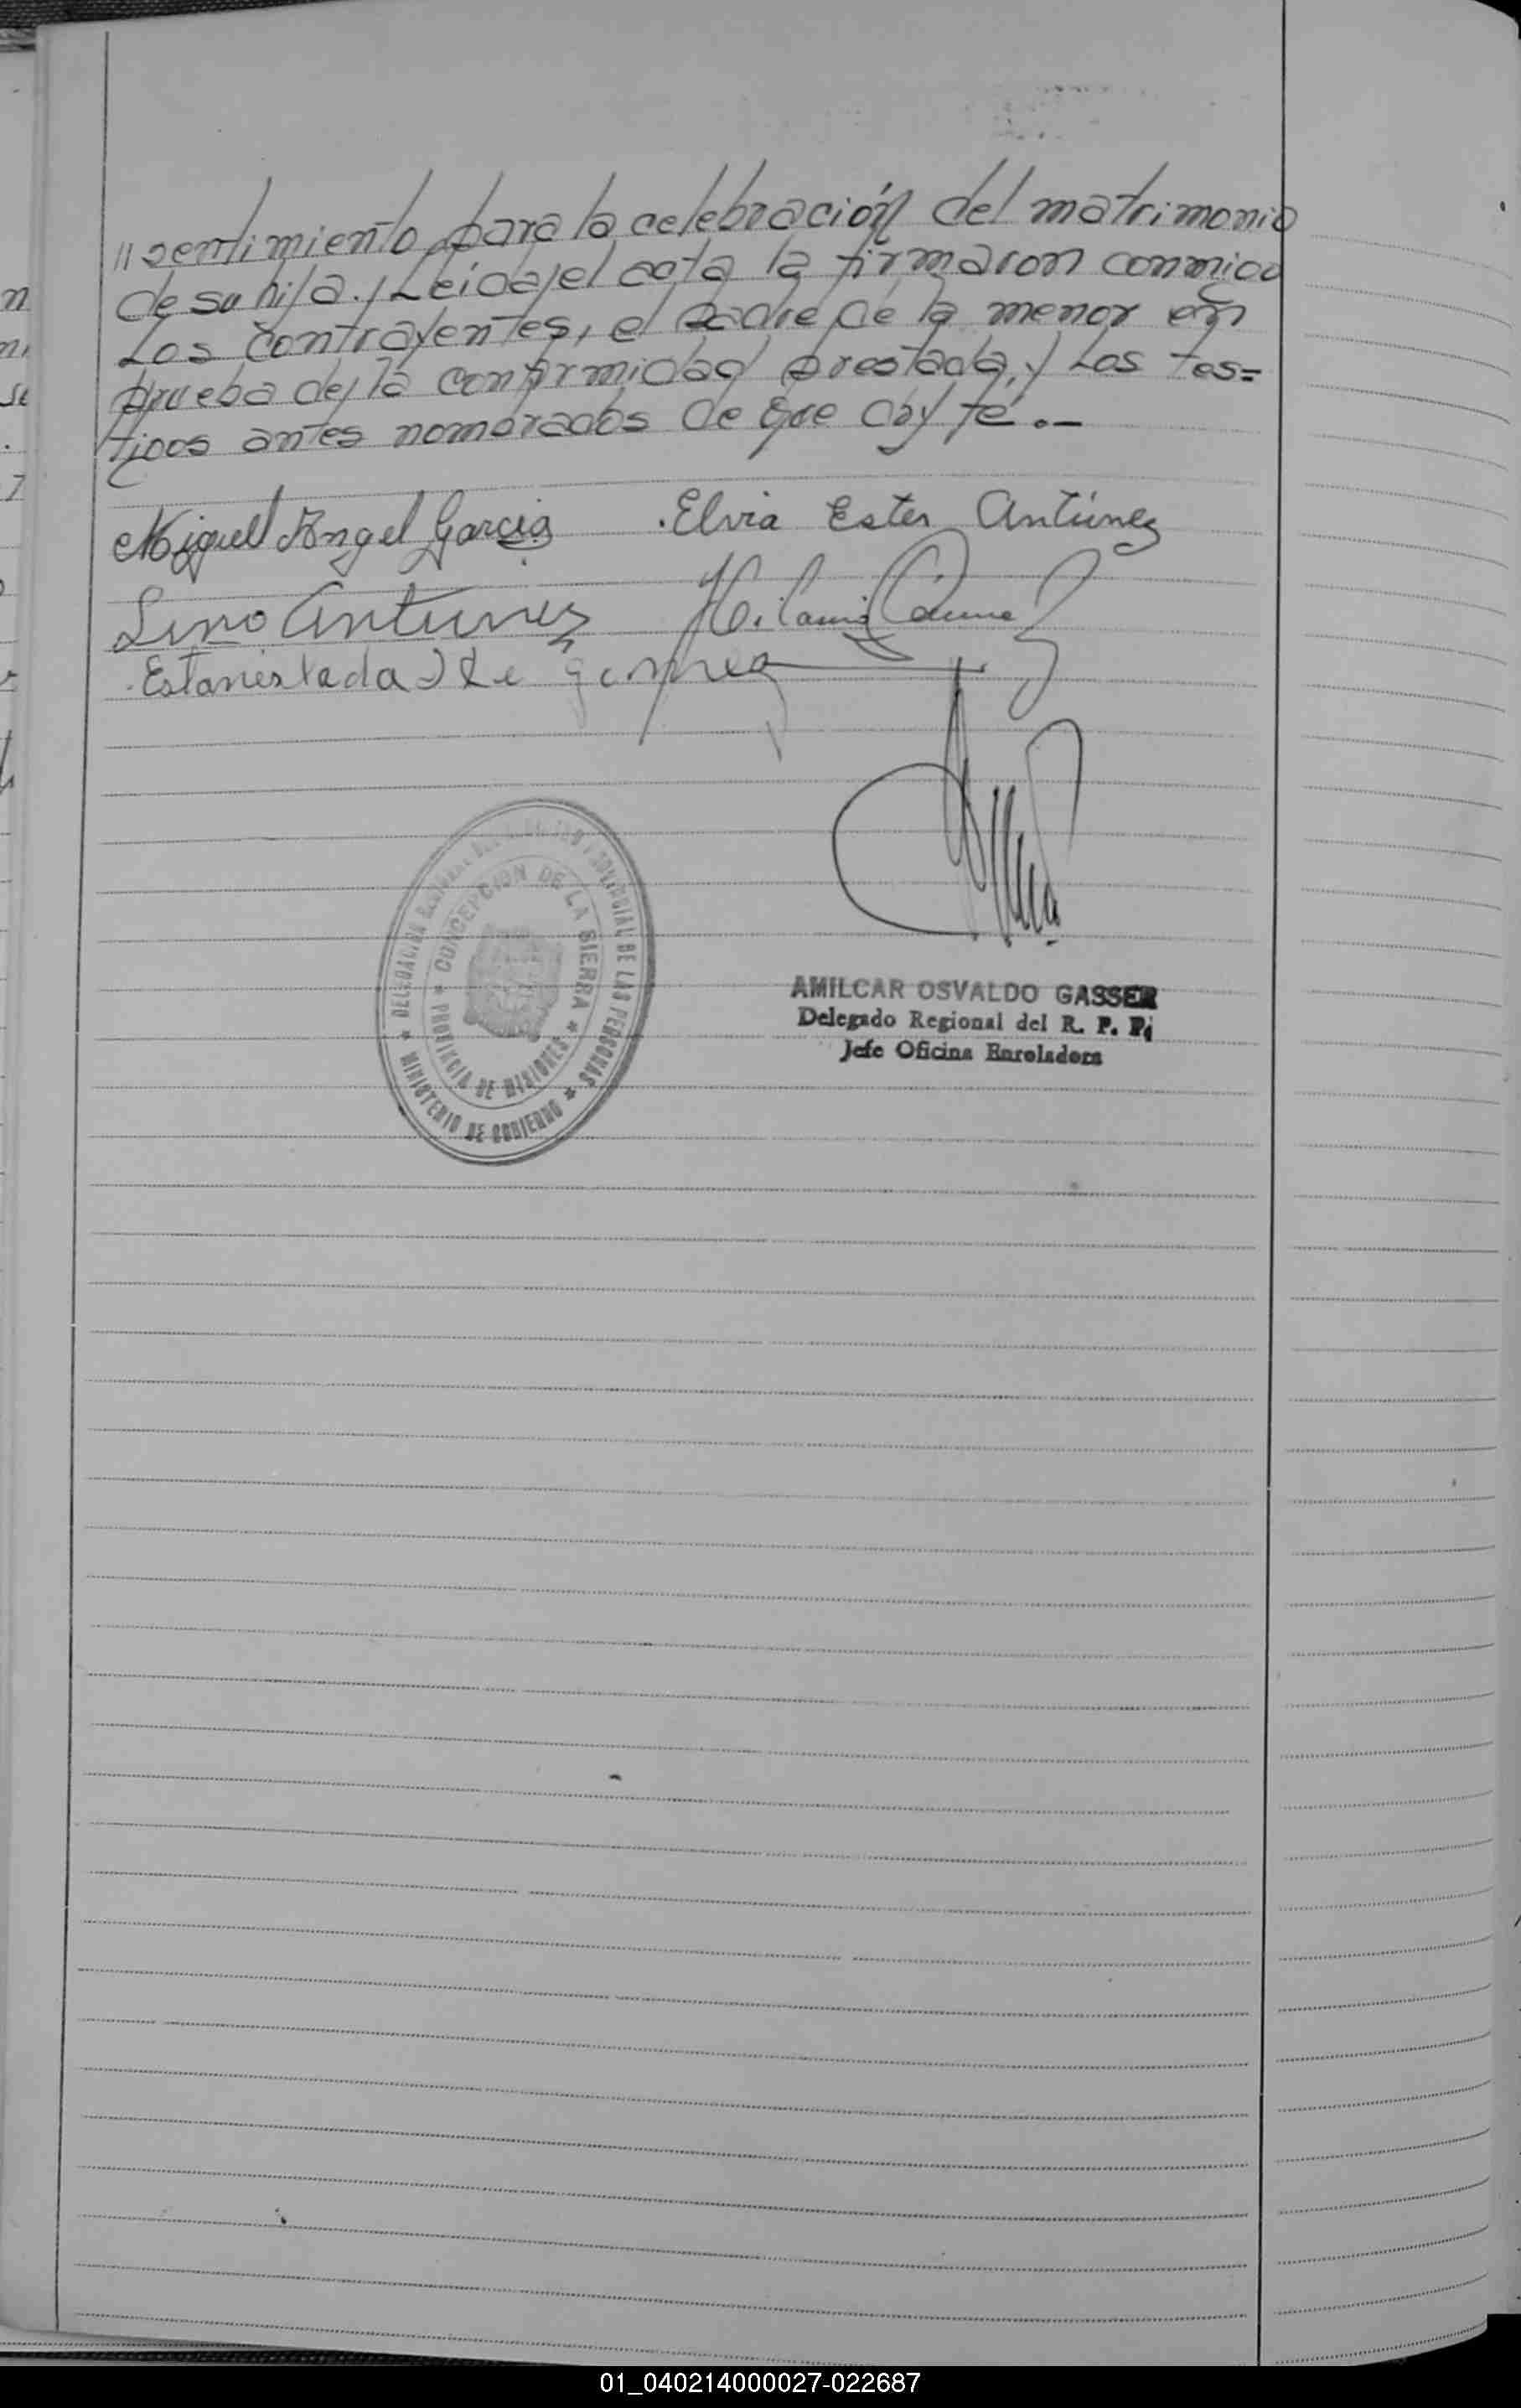 //sentimiento para la celebración del matrimonio
de su hija. Leida el acta la firmaron conmigo
Los contrayentes, el padre de la menor en
prueba de la conformidad prestada, y Los tes=
tigos antes nombrados de que doy fé.-
Miguel Angel Garcia
Elvia Ester Antúnez
Lino Antunez
Estanislada
CONCEPCION DE LA SIERRA
PROVINCIA DE MISIONES
DE LAS PERSONAS
MINISTERIO DE GOBIERNO
AMILCAR OSVALDO GASSER
Delegado Regional del R. P. P.
Jefe Oficina Enroladora
01_040214000027-022687